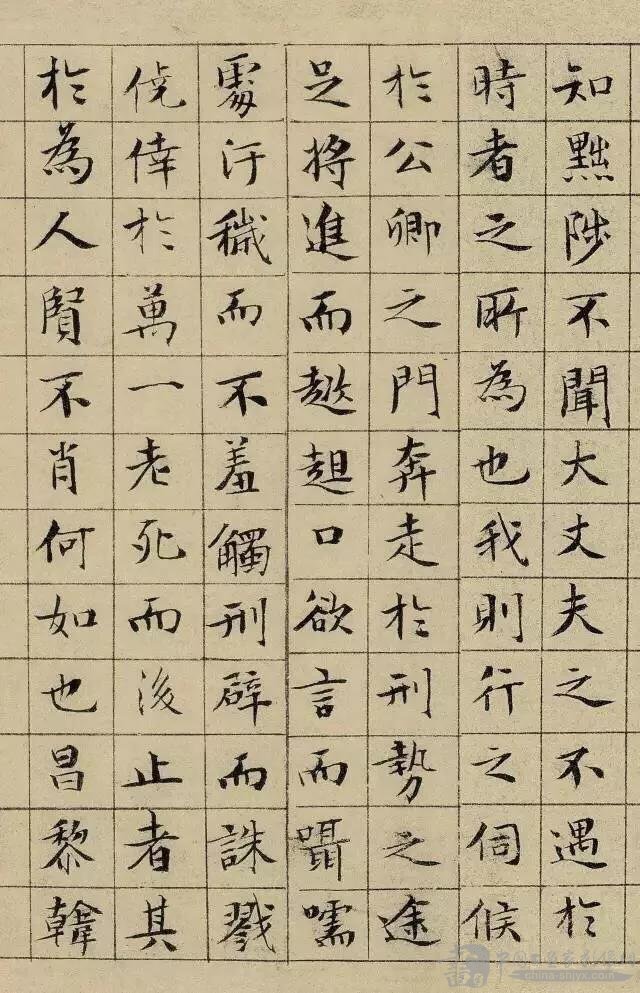 知黜陟不聞大丈夫之不遇於
時者之所為也我則行之伺候
於公卿之門奔走於刑勢之途
足將進而趑趄口欲言而囁嚅
處汙穢而不羞觸刑辟而誅戮
僥倖於萬一老死而後止者其
於為人賢不肖何如也昌黎韓
china-shjyx.com